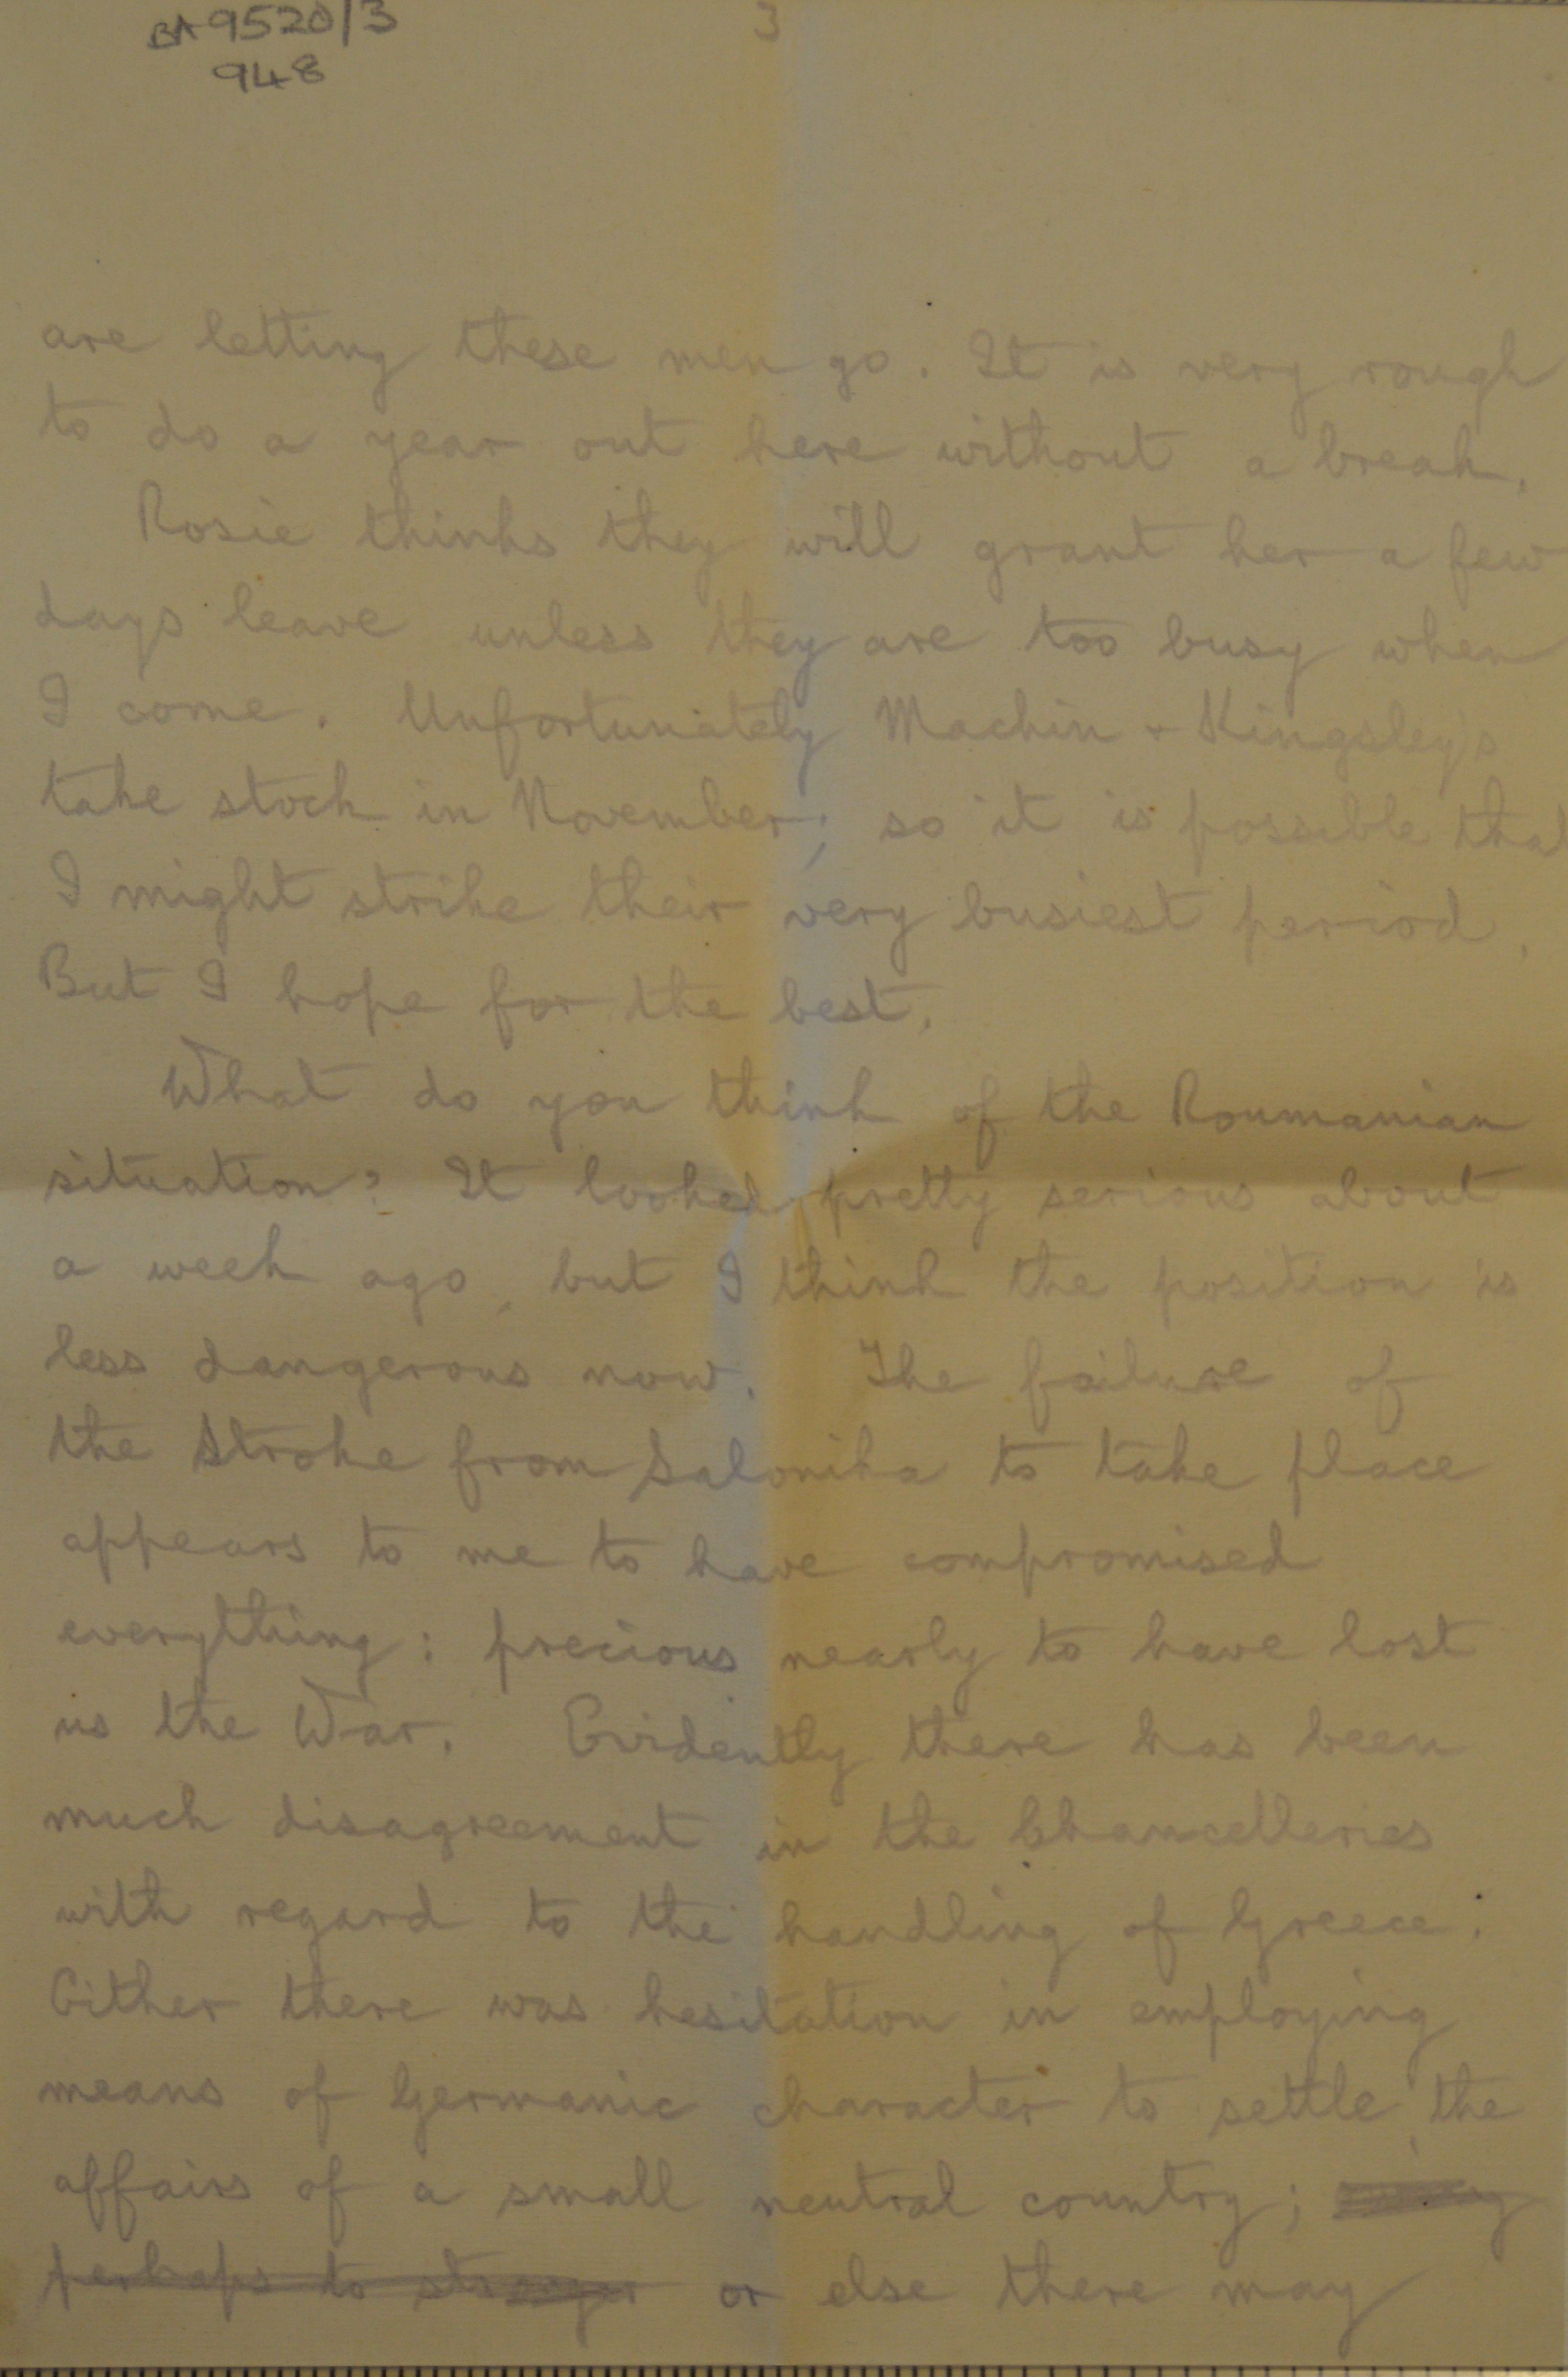 BA 9520/3
948
3
are letting these men go. It is very rough
to do a year out here without a break.
Rosie thinks they will grant her a few
days leave unless they are too busy when
I come. Unfortunately Machin & Kingsley's
take stock in November; so it is possible that
I might strike their very busiest period.
But I hope for the best.
What do you think of the Roumanian
situation? It looked pretty serious about
a week ago, but I think the position is
less dangerous now. The failure of
the stroke from Salonika to take place
appears to me to have compromised
everything: precious nearly to have lost
us the War. Evidently there has been
much disagreement in the Chancelleries
with regard to the handling of Greece.
Either there was hesitation in employing
means of Germanic character to settle the
affairs of a small neutral country;
perhaps to or else there may